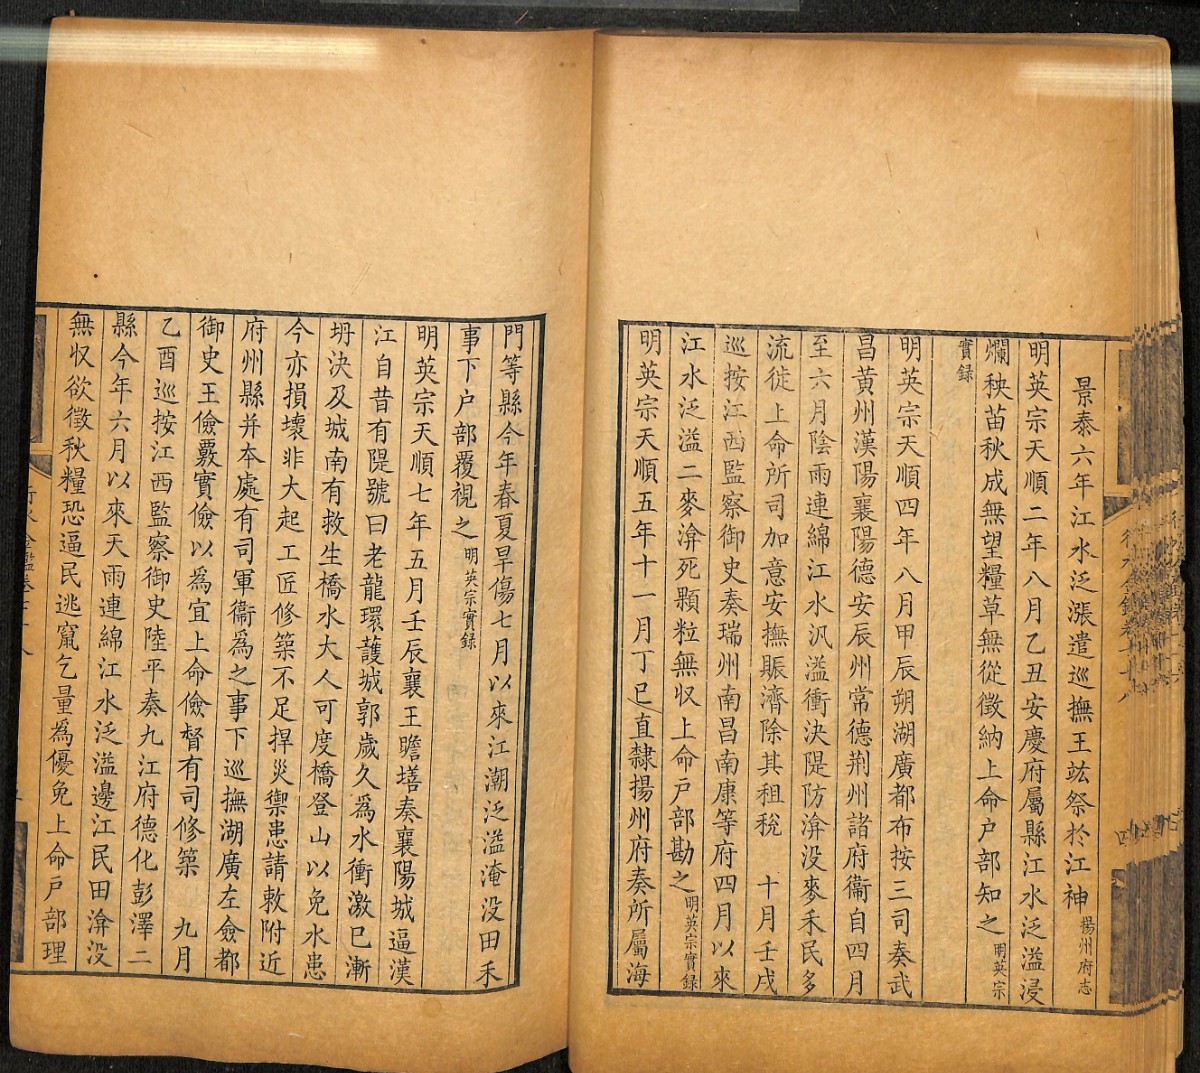 景泰六年江水泛漲遣巡撫王竑祭於江神揚州府志
明英宗天順二年八月乙丑安慶府屬縣江水泛溢浸
爛秧苗秋成無望糧草無從徵納上命户部知之明英宗
實録
明英宗天順四年八月甲辰朔湖廣都布按三司奏武
昌黄州漢陽襄陽德安辰州常德荆州諸府衞自四月
至六月陰雨連綿江水汎溢衝決隄防渰没麥禾民多
流徙上命所司加意安撫賑濟除其租稅　十月壬戌
巡按江西監察御史奏瑞州南昌南康等府四月以來
江水泛溢二麥渰死顆粒無収上命戸部勘之明英宗實録
明英宗天順五年十一月丁巳直隸揚州府奏所屬海
門等縣今年春夏旱傷七月以來江潮泛溢淹没田禾
事下户部覆視之明英宗實録
明英宗天順七年五月壬辰襄王瞻墡奏襄陽城逼漢
江自昔有隄號曰老龍環護城郭歲久爲水衝激已漸
坍決及城南有救生橋水大人可度橋登山以免水患
今亦損壞非大起工匠修築不足捍災禦患請敕附近
府州縣并本處有司軍衞爲之事下巡撫湖廣左僉都
御史王儉覈實儉以爲宜上命儉督有司修築　九月
乙酉巡按江西監察御史陸平奏九江府德化彭澤二
縣今年六月以來天雨連綿江水泛溢邊江民田渰没
無収欲徵秋糧恐逼民逃竄乞量爲優免上命戸部理